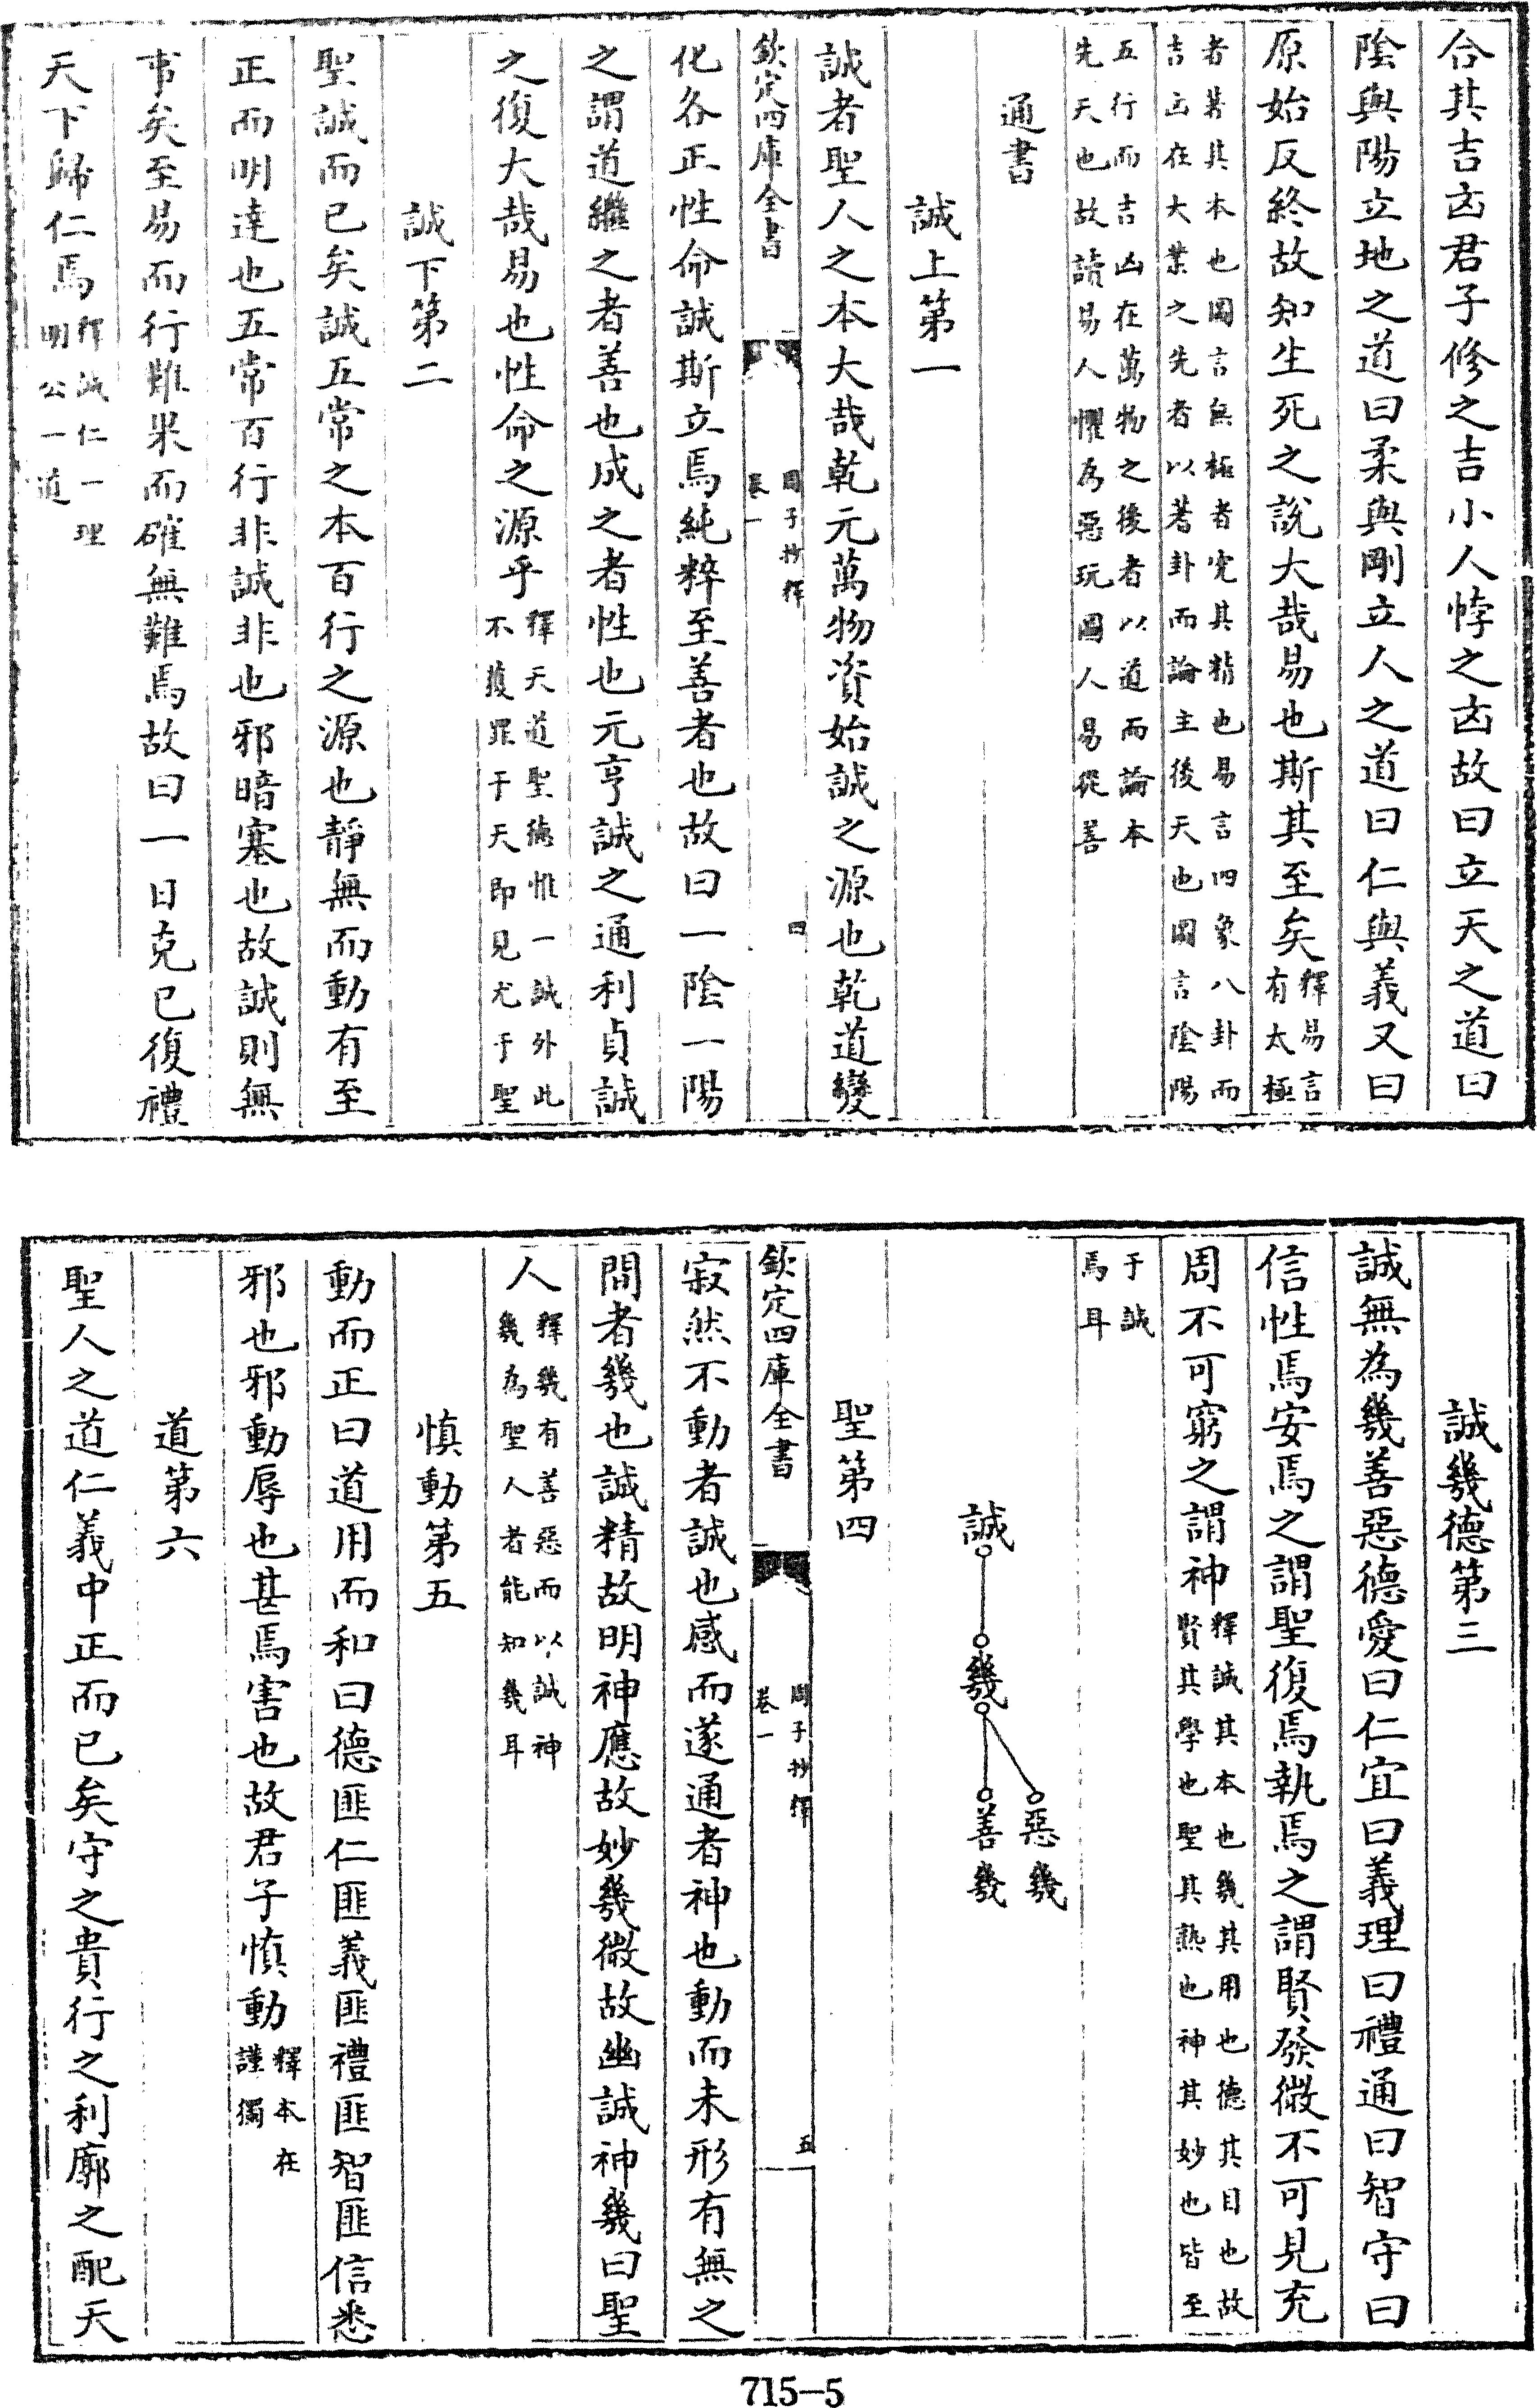 合其吉凶君子修之吉小人悖之凶故曰立天之道曰
陰與陽立地之道曰柔與剛立人之道曰仁與義又曰
原始反終故知生死之說大哉易也斯其至矣釋易言
有太極
者著其本也圖言無極者究其精也易言四象八卦而
吉凶在大業之先者以蓍卦而論主後天也圖言陰陽
五行而吉凶在萬物之後者以道而論本
先天也故讀易人懼為惡玩圖人易從善
通書
誠上第一
誠者聖人之本大哉乾元萬物資始誠之源也乾道變
欽定四庫全書
周子抄釋
卷一
四
化各正性命誠斯立焉純粹至善者也故曰一陰一陽
之謂道繼之者善也成之者性也元亨誠之通利貞誠
之復大哉易也性命之源乎釋天道聖德惟一誠外此
不獲罪于天即見尤于聖
誠下第二
聖誠而已矣誠五常之本百行之源也靜無而動有至
正而明達也五常百行非誠非也邪暗塞也故誠則無
事矣至易而行難果而確無難焉故曰一日克己復禮
天下歸仁焉釋誠仁一理
明公一道
誠幾德第三
誠無為幾善惡德愛曰仁宜曰義理曰禮通曰智守曰
信性焉安焉之謂聖復焉執焉之謂賢發微不可見充
周不可窮之謂神釋誠其本也幾其用也德其目也故
賢其學也聖其熟也神其妙也皆至
于誠
焉耳
誠
幾
惡幾
善幾
聖第四
欽定四庫全書
周子抄釋
卷一
五
寂然不動者誠也感而遂通者神也動而未形有無之
間者幾也誠精故明神應故妙幾微故幽誠神幾曰聖
人釋幾有善惡而以誠神
幾為聖人者能知幾耳
慎動第五
動而正曰道用而和曰德匪仁匪義匪禮匪智匪信悉
邪也邪動辱也甚焉害也故君子慎動釋本在
謹獨
道第六
聖人之道仁義中正而已矣守之貴行之利廓之配天
715-5